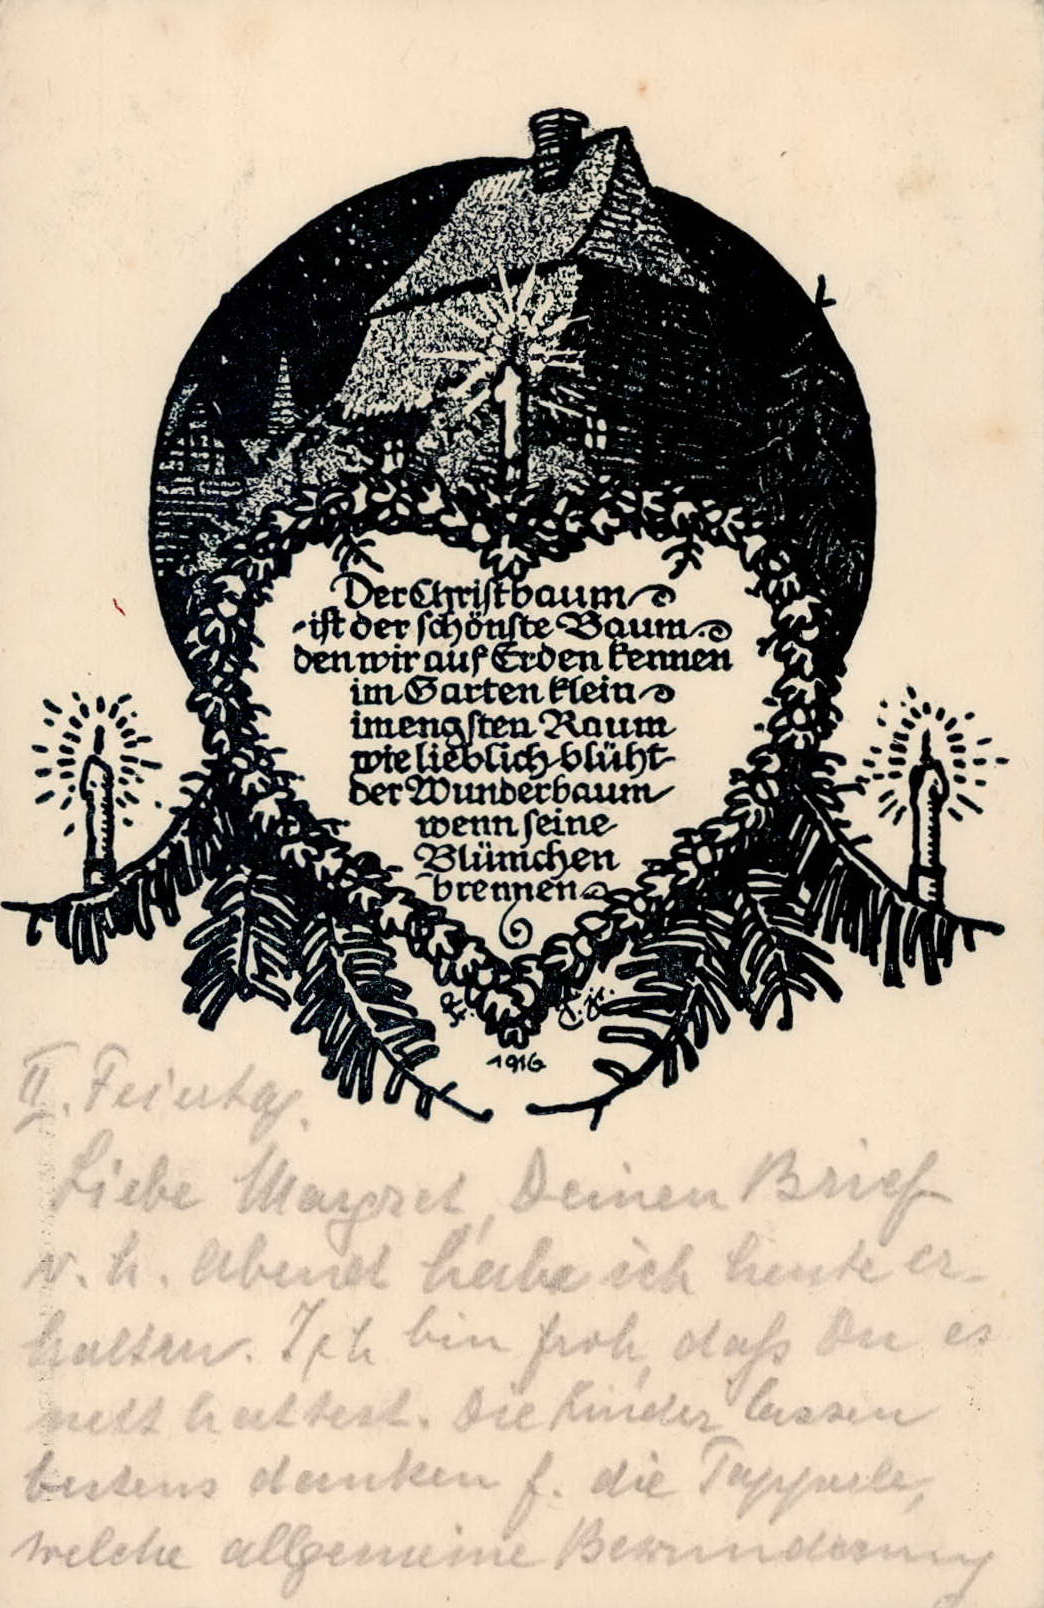 Der Christbaum
ist der schönste Baum
den wir auf Erden kennen
im Garten klein
im engsten Raum
wie lieblich blüht
der Wunderbaum
wenn seine
Blümchen
brennen
1916
II. Feiertag.
Liebe Margret, Deinen Brief
v. h. Abend habe ich heute er-
halten. Ich bin froh, daß Du es
nett hattest. Die Kinder lassen
bestens danken f. die
welche allgemeine Bewunderung